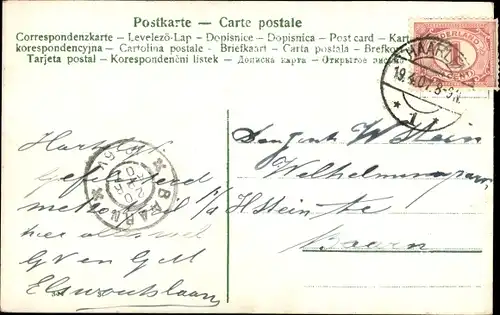 Postkarte — Carte postale
Correspondenzkarte – Levelező-Lap – Dopisnice – Dopisnica – Post card – Kart
korespondencyjna – Cartolina postale – Briefkaart – Carta postala – Brefkort
Tarjeta postal – Korespondenční listek – Дописна карта – Открытое письмо
NEDERLAND
1
CENT
HAARL
19.4.07. 8-9N
* 1
BAARN
Hartelijk
gefeliciteerd
met
hier alles wel
G V en G M
Elswoutslaan
W Stein
Wilhelminapark
p/a H Stein
Baarn